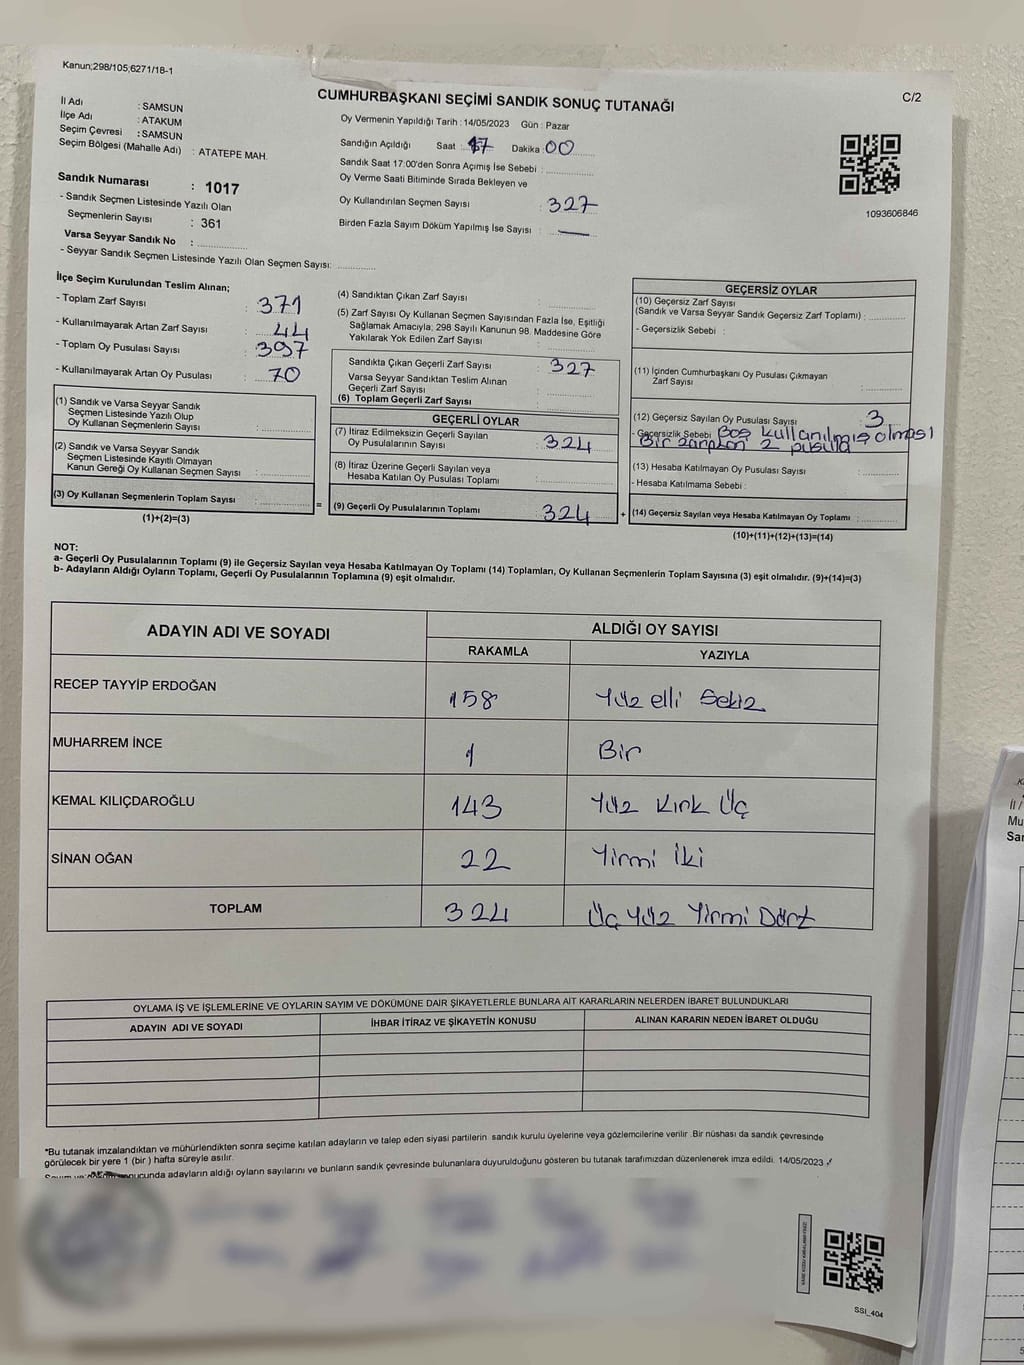 Kanun;298/105;6271/18-1
C/2
CUMHURBAŞKANI SEÇİMİ SANDIK SONUÇ TUTANAĞI
İl Adı : SAMSUN
İlçe Adı : ATAKUM
Seçim Çevresi : SAMSUN
Seçim Bölgesi (Mahalle Adı) : ATATEPE MAH.
Sandık Numarası : 1017
- Sandık Seçmen Listesinde Yazılı Olan
Seçmenlerin Sayısı : 361
Varsa Seyyar Sandık No :
- Seyyar Sandık Seçmen Listesinde Yazılı Olan Seçmen Sayısı:
Oy Vermenin Yapıldığı Tarih : 14/05/2023 Gün : Pazar
Sandığın Açıldığı Saat : 17 Dakika : 00
Sandık Saat 17:00'den Sonra Açımış İse Sebebi :
Oy Verme Saati Bitiminde Sırada Bekleyen ve
Oy Kullandırılan Seçmen Sayısı : 327
Birden Fazla Sayım Döküm Yapılmış İse Sayısı : —
1093606846
İlçe Seçim Kurulundan Teslim Alınan;
- Toplam Zarf Sayısı : 371
- Kullanılmayarak Artan Zarf Sayısı : 44
- Toplam Oy Pusulası Sayısı : 397
- Kullanılmayarak Artan Oy Pusulası : 70
(1) Sandık ve Varsa Seyyar Sandık
Seçmen Listesinde Yazılı Olup
Oy Kullanan Seçmenlerin Sayısı :
(2) Sandık ve Varsa Seyyar Sandık
Seçmen Listesinde Kayıtlı Olmayan
Kanun Gereği Oy Kullanan Seçmen Sayısı :
(3) Oy Kullanan Seçmenlerin Toplam Sayısı :
(1)+(2)=(3)
=
(4) Sandıktan Çıkan Zarf Sayısı :
(5) Zarf Sayısı Oy Kullanan Seçmen Sayısından Fazla İse, Eşitliği
Sağlamak Amacıyla; 298 Sayılı Kanunun 98. Maddesine Göre
Yakılarak Yok Edilen Zarf Sayısı :
Sandıkta Çıkan Geçerli Zarf Sayısı : 327
Varsa Seyyar Sandıktan Teslim Alınan
Geçerli Zarf Sayısı :
(6) Toplam Geçerli Zarf Sayısı :
GEÇERLİ OYLAR
(7) İtiraz Edilmeksizin Geçerli Sayılan
Oy Pusulalarının Sayısı : 324
(8) İtiraz Üzerine Geçerli Sayılan veya
Hesaba Katılan Oy Pusulası Toplamı :
(9) Geçerli Oy Pusulalarının Toplamı : 324
+
GEÇERSİZ OYLAR
(10) Geçersiz Zarf Sayısı
(Sandık ve Varsa Seyyar Sandık Geçersiz Zarf Toplamı) :
- Geçersizlik Sebebi :
(11) İçinden Cumhurbaşkanı Oy Pusulası Çıkmayan
Zarf Sayısı :
(12) Geçersiz Sayılan Oy Pusulası Sayısı : 3
- Geçersizlik Sebebi Boş kullanılmış olması
Bir zarftan 2 pusula
(13) Hesaba Katılmayan Oy Pusulası Sayısı :
- Hesaba Katılmama Sebebi :
(14) Geçersiz Sayılan veya Hesaba Katılmayan Oy Toplamı :
(10)+(11)+(12)+(13)=(14)
NOT:
a- Geçerli Oy Pusulalarının Toplamı (9) ile Geçersiz Sayılan veya Hesaba Katılmayan Oy Toplamı (14) Toplamları, Oy Kullanan Seçmenlerin Toplam Sayısına (3) eşit olmalıdır. (9)+(14)=(3)
b- Adayların Aldığı Oyların Toplamı, Geçerli Oy Pusulalarının Toplamına (9) eşit olmalıdır.
ADAYIN ADI VE SOYADI
ALDIĞI OY SAYISI
RAKAMLA YAZIYLA
RECEP TAYYİP ERDOĞAN 158 Yüz elli Sekiz
MUHARREM İNCE 1 Bir
KEMAL KILIÇDAROĞLU 143 Yüz Kırk Üç
SİNAN OĞAN 22 Yirmi İki
TOPLAM 324 Üç Yüz Yirmi Dört
OYLAMA İŞ VE İŞLEMLERİNE VE OYLARIN SAYIM VE DÖKÜMÜNE DAİR ŞİKAYETLERLE BUNLARA AİT KARARLARIN NELERDEN İBARET BULUNDUKLARI
ADAYIN ADI VE SOYADI İHBAR İTİRAZ VE ŞİKAYETİN KONUSU ALINAN KARARIN NEDEN İBARET OLDUĞU
*Bu tutanak imzalandıktan ve mühürlendikten sonra seçime katılan adayların ve talep eden siyasi partilerin sandık kurulu üyelerine veya gözlemcilerine verilir .Bir nüshası da sandık çevresinde
görülecek bir yere 1 (bir ) hafta süreyle asılır.
adayların aldığı oyların sayılarını ve bunların sandık çevresinde bulunanlara duyurulduğunu gösteren bu tutanak tarafımızdan düzenlenerek imza edildi. 14/05/2023
SSI_404